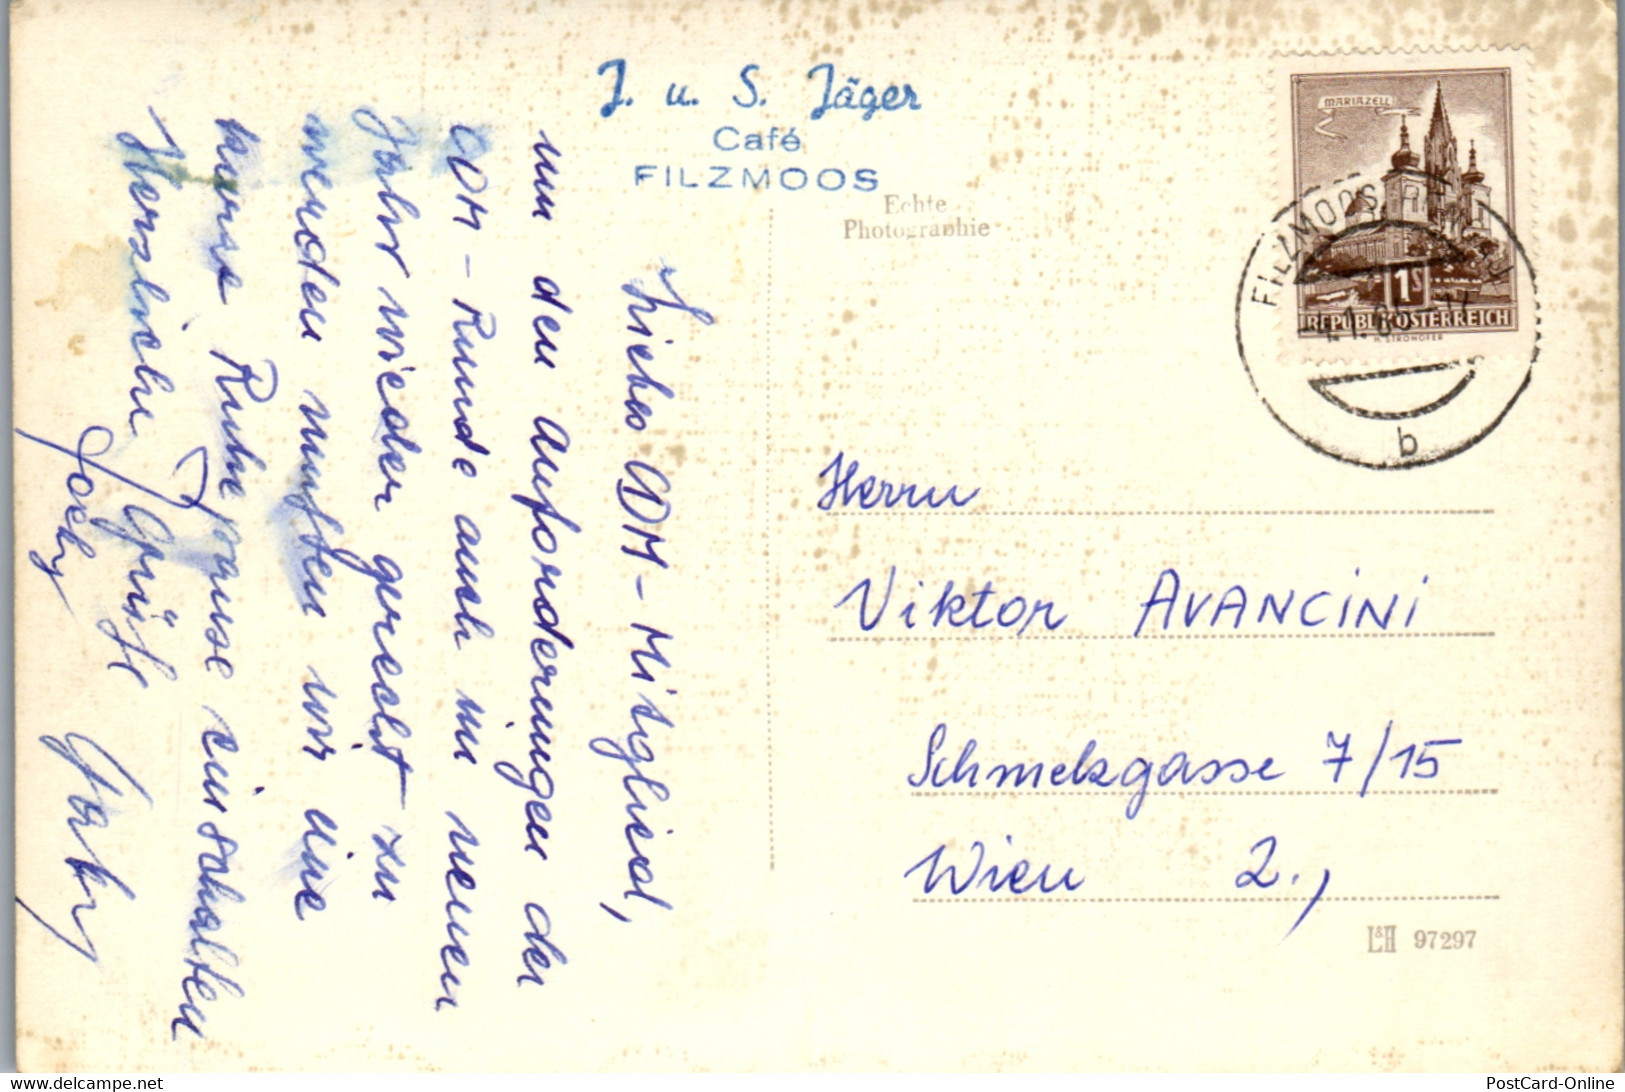 J. u. S. Jäger
Café
FILZMOOS
Echte
Photographie
MARIAZELL
1S
REPUBLIK ÖSTERREICH
H. STROHOFER
FILZMOOS,
b
Liebes ODM-Mitglied,
um den Anforderungen der
ODM-Runde auch im neuen
Jahr wieder gerecht zu
werden mußten wir eine
kurze Ruhepause einschalten
Herzliche Grüße
Gaby
Herrn
Viktor AVANCINI
Schmelzgasse 7/15
Wien 2.,
L&H 97297
PostCard-Online
https://www.delcampe.net